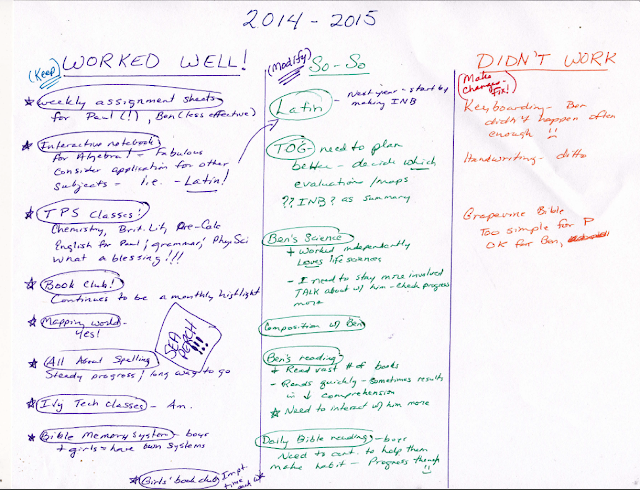 2014 - 2015
(Keep) WORKED WELL!
weekly assignment sheets
for Paul (!), Ben (less effective)
Interactive notebook
for Algebra! - Fabulous
Consider application for other
subjects - i.e. - Latin!
TPS Classes!
Chemistry, Brit. Lit, Pre-Calc
English for Paul; grammar; Phys Sci
What a blessing!!!
Book Club!
Continues to be a monthly highlight
Mapping world -
Yes!
SEA
PERCH
!!!
All About Spelling
Steady progress; long way to go
Ivy Tech classes - Am.
Bible Memory System - boys
+ girls = have own systems
Girls' book club
Impt.
time
(Modify) So-So
Latin - Next year - start by
making INB
TOG - need to plan
better - decide which
evaluation/maps
?? INB? as summary
Ben's Science
+ Worked independently
Loves life science
- I need to stay more involved
TALK about w/ him - check progress
more
Composition w/ Ben
Ben's reading
+ Read vast # of books
- Reads quickly - sometimes results
in ↓ comprehension
Need to interact w/ him more
Daily Bible reading - boys
Need to cont. to help them
make habit - Progress though
DIDN'T WORK
(Make
changes -
FIX!)
Keyboarding - Ben
didn't happen often
enough !!
Handwriting - ditto
Grapevine Bible
Too simple for P
OK for Ben,